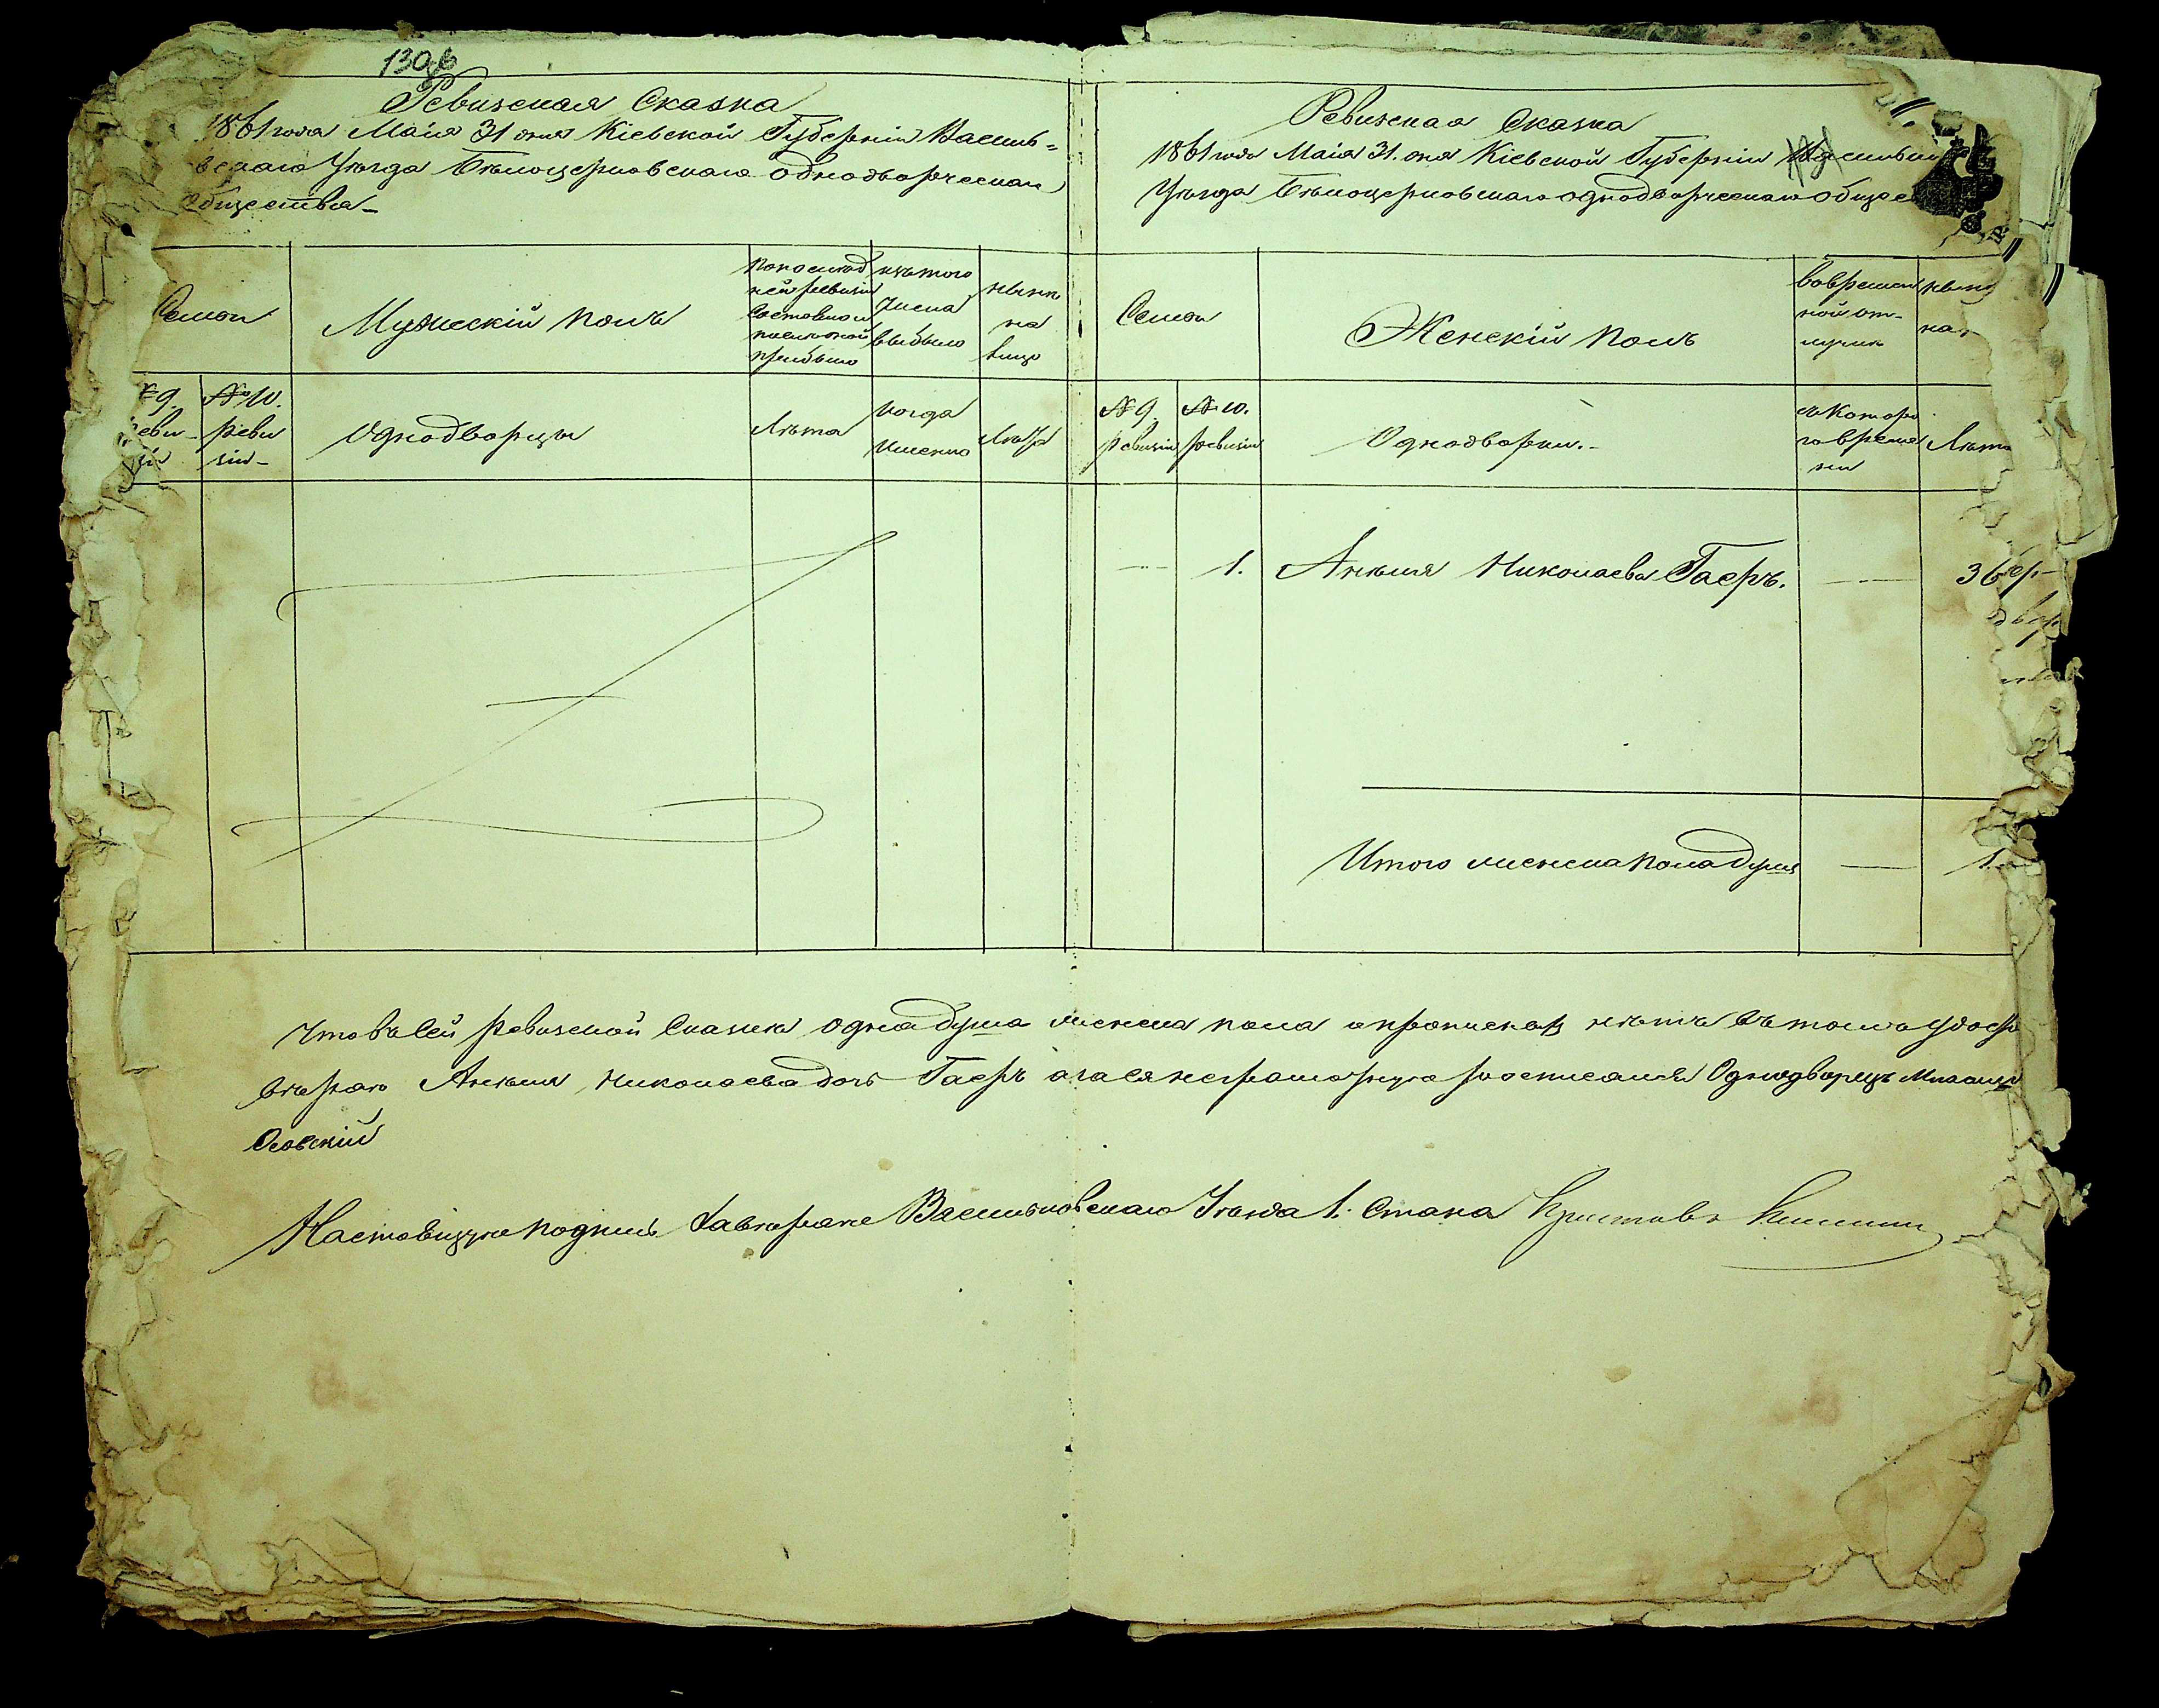 130
Ревизская Сказка
1861 года Маия 31 дня Кіевской Губерніи Василь=
вскаго Уѣзда Бѣлоцерковскаго однодворческаго
Общества
Семьи
Мужескій полъ
По послед
ней ревизіи
состояло и
после оной
прибыло
изъ того
числа
выбыло
нынѣ
на
лицо
№9.
реви
зіи
№10.
реви
зіи
Однодворцы
Лѣта
когда
именно
Лѣта
Ревизская Сказка
1861 года Маія 31. дня Кіевской Губерніи
Уѣзда Бѣлоцерковскаго однодворческаго Общес
Семьи
Женскій полъ
во времен
ной от-
лучкѣ
нынѣ
на
№9.
ревизіи
№10.
ревизіи
Однодворки.
съ котора
го време
ни
Лѣта
1. Анеля Николаева Гаеръ. 36
Итого женска пола душа 1.
Что въ сей ревизской Сказкѣ одна душа женска пола и прописныхъ нѣтъ въ томъ удосто
вѣряю Анеля Николаева дочь Гаеръ а за ея неграмотную росписался Однодворецъ
Осовскій
Настоящую подпись Васильковскаго Уѣзда 1. Стана Приставъ